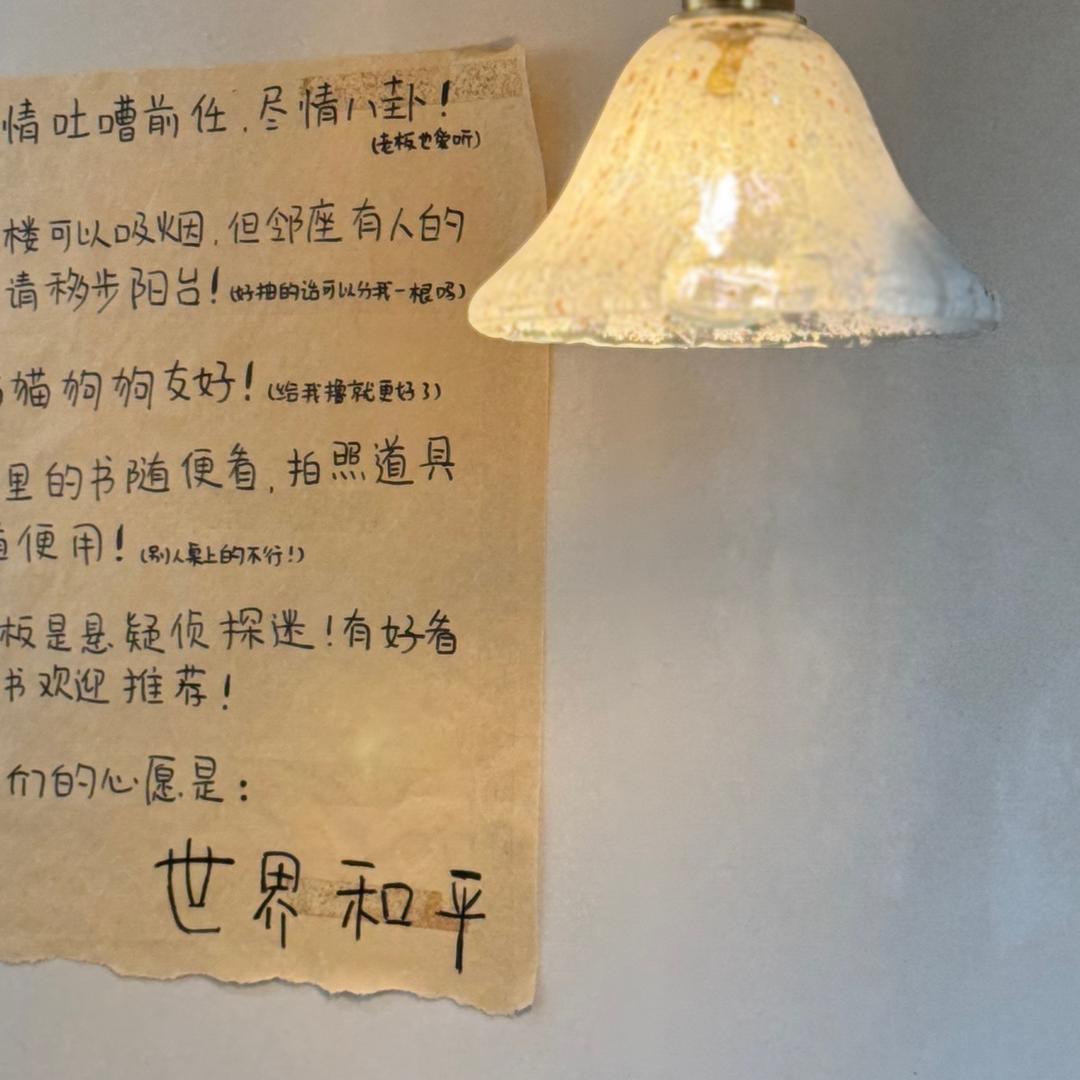 情吐嘈前任,尽情八卦!
(老板也爱听)
楼可以吸烟,但邻座有人的
请移步阳台!(好抽的话可以分我一根吗)
猫狗狗友好!(给我撸就更好了)
里的书随便看,拍照道具
便用!(别人桌上的不行!)
板是悬疑侦探迷!有好看
书欢迎推荐!
们的心愿是:
世界和平